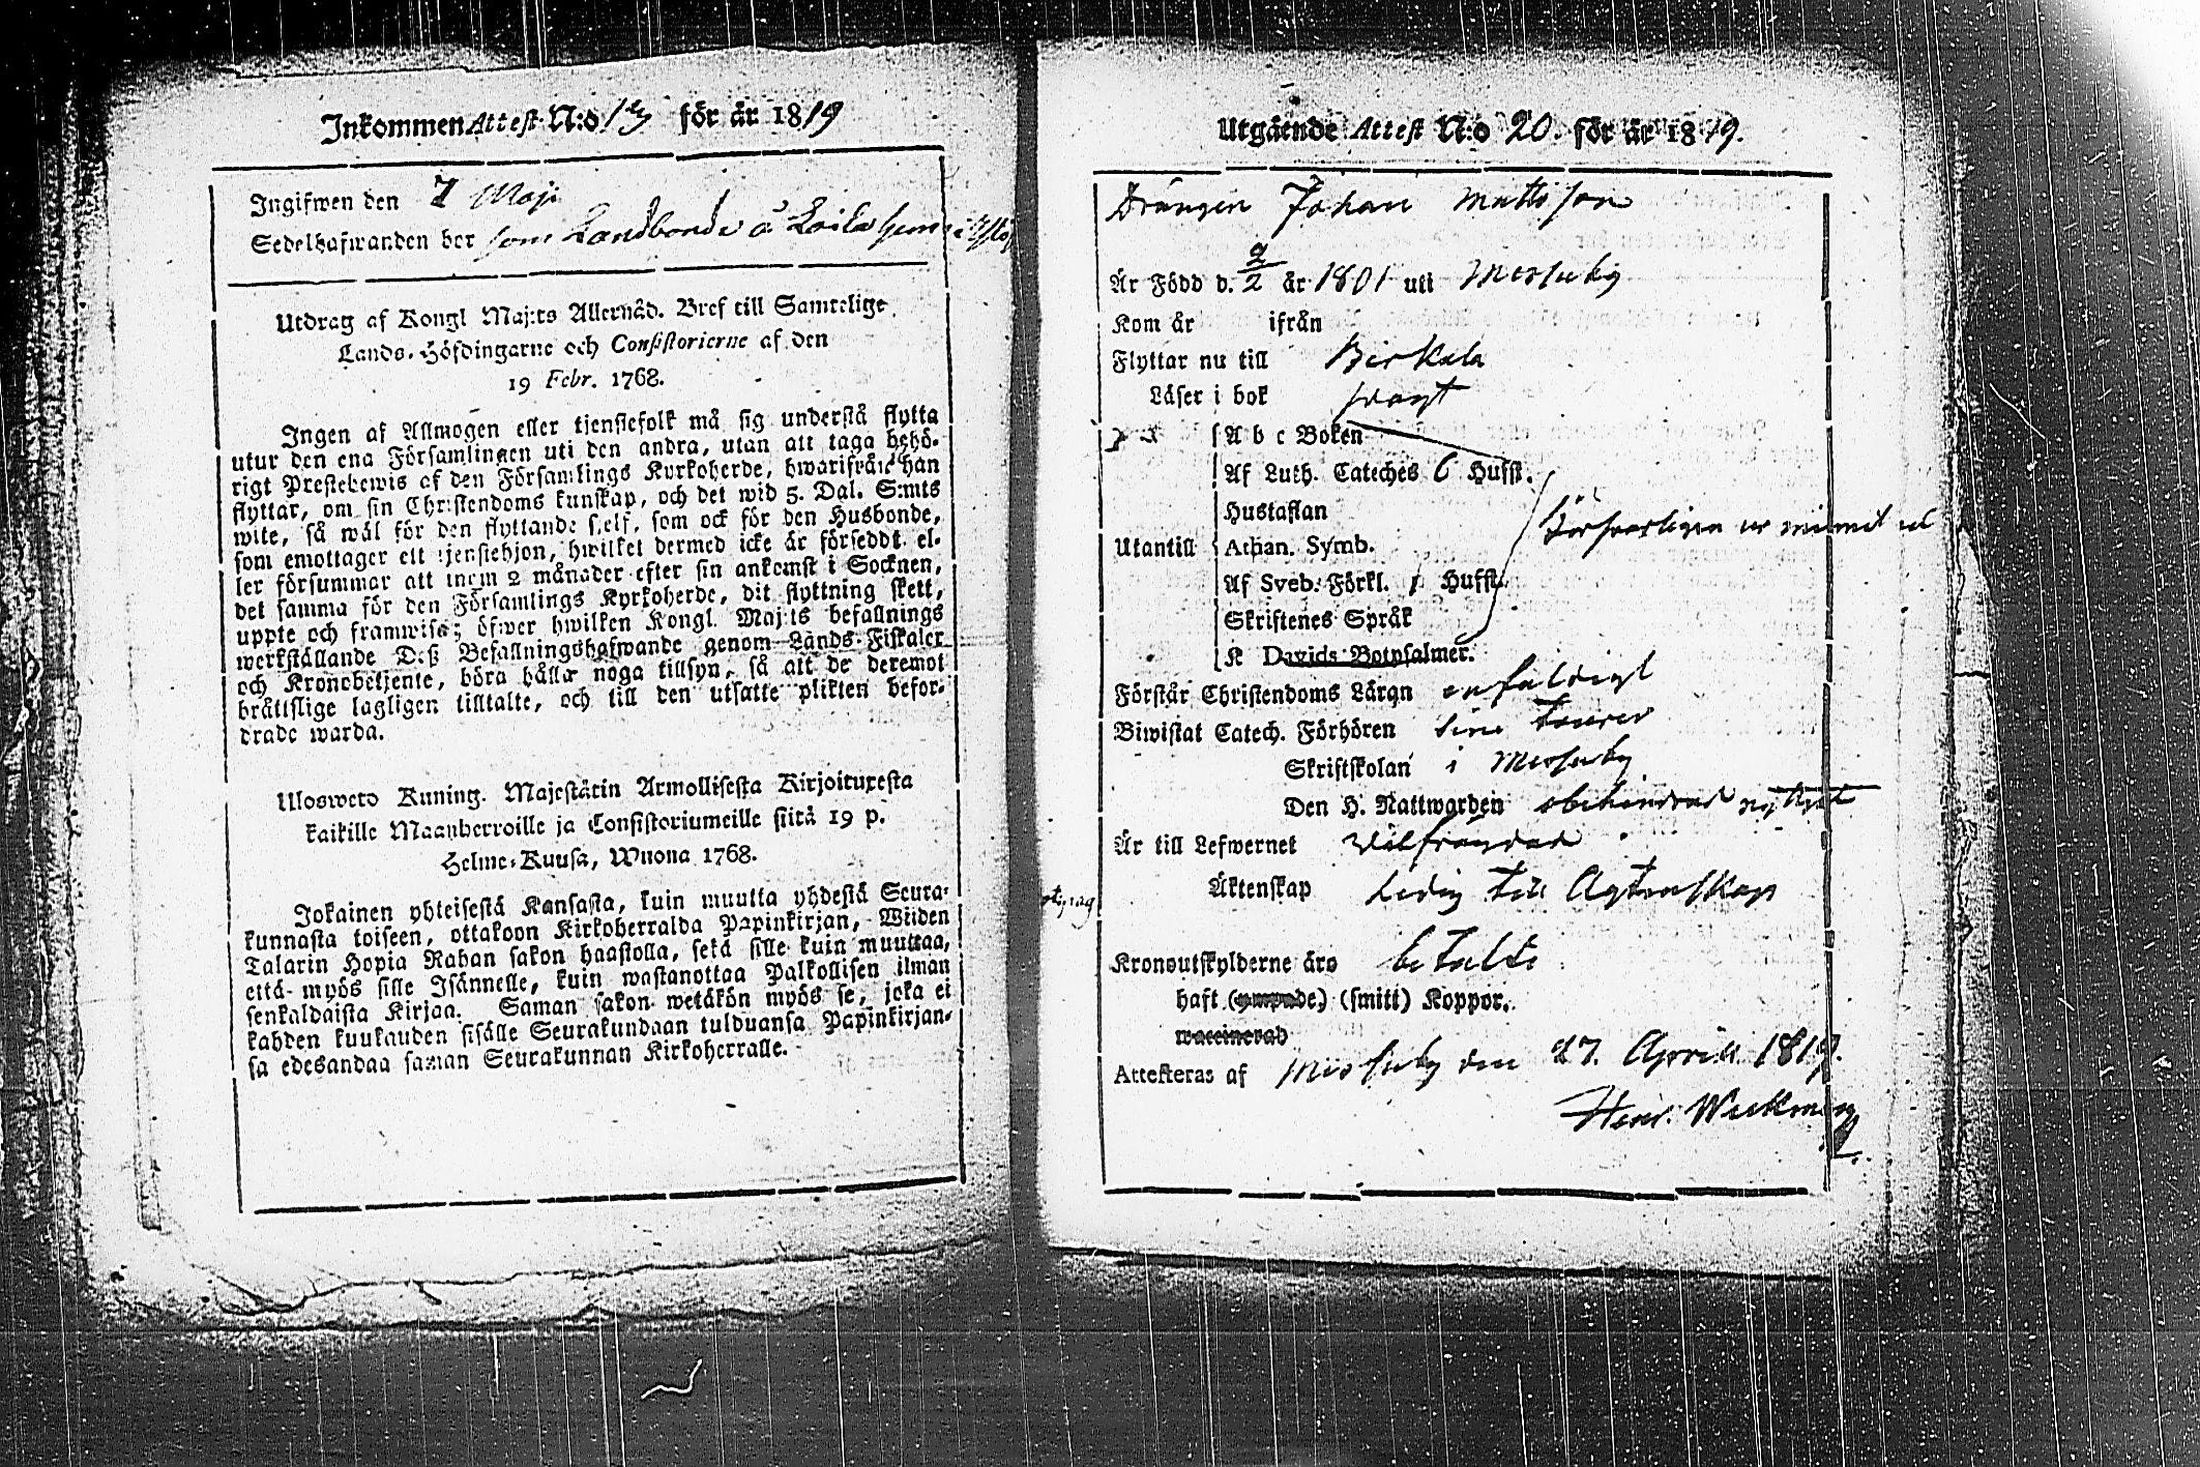 Inkommen Attest N:o 13 för år 1819
Ingifwen den 7 Maji
Sedelhafwanden bor som Landbonde å Laila hemm i
Utdrag af Kongl Maj:ts Allernåd. Bref till Samtelige
Lands-Höfdingarne och Consistorierne af den
19 Febr. 1768.
Ingen af Allmogen eller tjenstefolk må sig understå flytta
utur den ena Församlingen uti den andra, utan att taga behö-
rigt Prestebewis af den Församlings Kyrkoherde, hwarifrån han
flyttar, om sin Christendoms kunskap, och det wid 5. Dal. S:mts
wite, så wäl för den flyttande self, som ock för den Husbonde,
som emottager ett tjenstehjon, hwilket dermed icke är försedd: el-
ler försummar att inom 2 månader efter sin ankomst i Socknen,
det samma för den Församlings Kyrkoherde, dit flyttning skett,
uppte och framwisa; öfwer hwilken Kongl. Maj:ts befallnings
werkställande Deß Befallningshafwande genom Lands-Fiskaler
och Kronobetjente, böra hålla noga tillsyn, så att de deremot
bråttslige lagligen tilltalte, och till den utsatte plikten befor-
drade warda.
Ulosweto Kuning. Majestätin Armollisesta Kirjoituxesta
kaikille Maanherroille ja Consistoriumeille siitä 19 p.
Helme-Kuusa, Wuona 1768.
Jokainen yhteisestä Kansasta, kuin muutta yhdestä Seura-
kunnasta toiseen, ottakoon Kirkoherralda Papinkirjan, Wiiden
Talarin Hopia Rahan sakon haastolla, sekä sille kuin muuttaa,
että myös sille Isännelle, kuin wastanottaa Palkollisen ilman
senkaldaista Kirjaa. Saman sakon wetäkön myös se, joka ei
kahden kuukauden sisälle Seurakundaan tulduansa Papinkirjan-
sa edesandaa saman Seurakunnan Kirkoherralle.
Utgående Attest N:o 20. för år 1819.
Drängen Johan Mattsson
Är Född d. 2/2 år 1801 uti Messuby
Kom år ifrån
Flyttar nu till Birkala
Läser i bok swagt
A b c Boken
Af Luth. Cateches 6 Hufst.
Hustaflan
Utantill Athan. Symb.
Af Sveb. Förkl. Hufst.
Skriftenes Språk
K Davids Botpsalmer.
Förstår Christendoms Läran enfaldigt
Biwistat Catech. Förhören sine tourer
Skriftskolan i Messuby
Den H. Nattwarden obehindrad nyttjat
Är till Lefwernet wälfrägdad
Äktenskap Ledig till Agtenskap
Kronoutskylderne äro betalte
haft (ympade) (smitt) Koppor.
waccinerad
Attesteras af Messuby den 27. April 1819.
Henr. Weckman